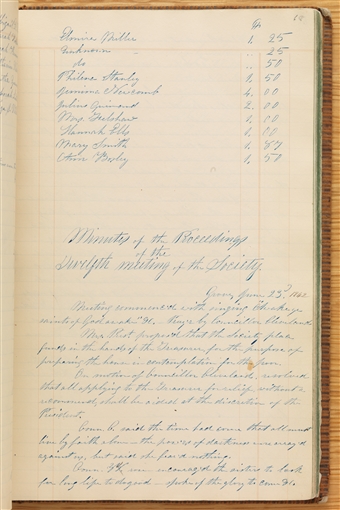 Elmira Miller 1, 25
Unknown .. 25
do .. 50
Philena Stanly 1, 50
Jemima Newcomb 4, 00
Julius Guinand 2, 00
Mrs. Gulshaw 1, 00
Hannah Ells 1, 00
Mary Smith 1, 87
Ann Bosley 1, 50
Minutes of the Proceedings
of the
Twelfth meeting of the Society
Grove, June 23d 1842
Meeting commenced with singing
saints of God and &c. Prayer by Councillor Cleveland
Mrs Pratt proposed that the society place
funds in the hands of the Treasurer for the purpose of
preparing the house in contemplation for the poor.
On motion of Councillor Cleveland, resolved
that all applying to the Treasurer for relief, without a
recommend, shall be aided at the discretion of the
President.
Coun. C. said the time had come that all must
live by faith alone – the powers of darkness were array'd
against us, but said she fear'd nothing.
Coun. encouraged the sisters to look
for long life to do good – spoke of the glory to come &c.